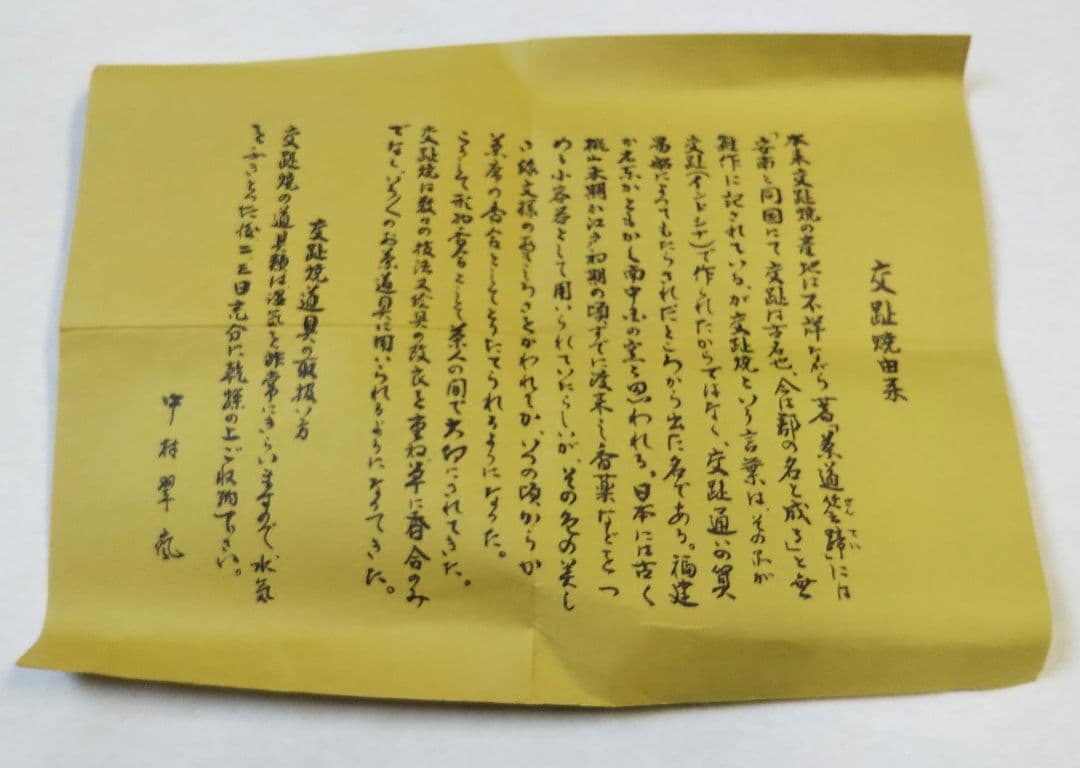 交趾焼由来
本来交趾焼の産地は不詳ながら著「茶道筌蹄」には
せんてい
「安南と同国にて交趾は方名也、今は郡の名と成る」と無
雑作に記されている、が交趾焼という言葉は、その品が
交趾(インドシナ)で作られたからではなく、交趾通いの貿
易船によってもたらされたところから出た名である。福建
か広東かともかく南中国の窯と思われる。日本には古く
桃山末期か江戸初期の頃すでに渡来し香薬などをつ
めた小容器として用いられていたらしいが、その色の美し
さ線文様のおもしろさとかわれてか、いつの頃からか
茶席の香合としてとりたてられるようになった。
こうして形物香合として茶人の間で大切にされてきた。
交趾焼は数々の技法又絵具の改良を重ね、単に香合のみ
でなく、いろいろのお茶道具に用いられるようになってきた。
交趾焼道具の取扱い方
交趾焼の道具類は湿気を非常にきらいますので、水気
をふきとった後二三日充分に乾燥の上ご収納下さい。
中村翠嵐